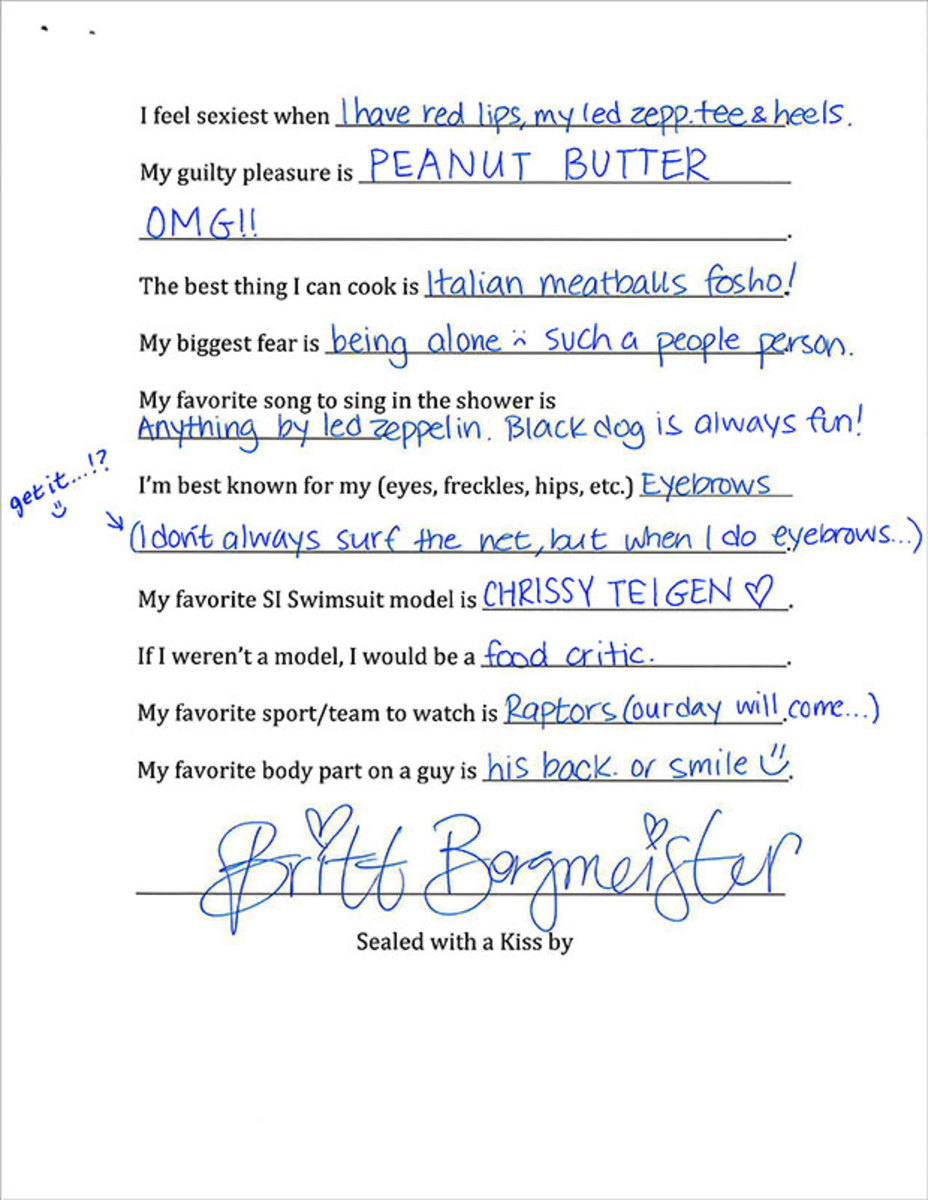 I feel sexiest when I have red lips, my led zepp. tee & heels.
My guilty pleasure is PEANUT BUTTER
OMG!!.
The best thing I can cook is Italian meatballs fosho!
My biggest fear is being alone :( such a people person.
My favorite song to sing in the shower is
Anything by led zeppelin. Black dog is always fun!
get it...!? :)
I'm best known for my (eyes, freckles, hips, etc.) Eyebrows
(I don't always surf the net, but when I do eyebrows...)
My favorite SI Swimsuit model is CHRISSY TEIGEN ♡.
If I weren't a model, I would be a food critic. .
My favorite sport/team to watch is Raptors (our day will come...)
My favorite body part on a guy is his back. or smile :).
Britt Bergmeister
Sealed with a Kiss by